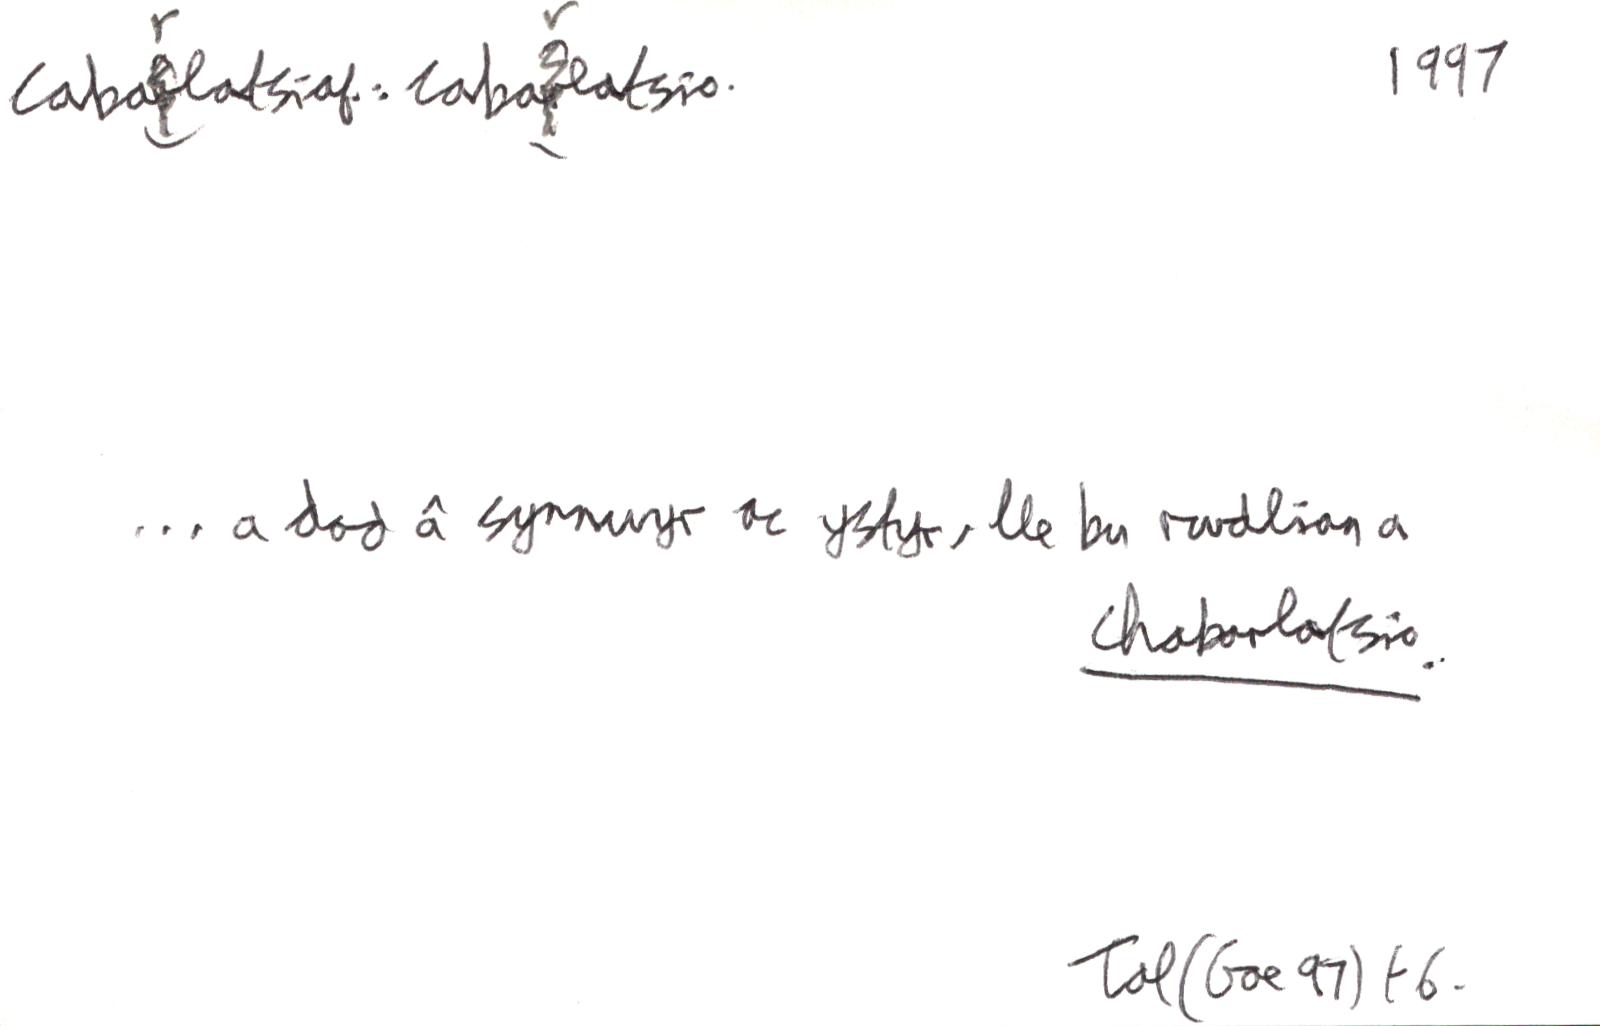 cabarlatsiaf: cabarlatsio. 1997
... a dod â synnwyr ac ystyr, lle bu rwdlian a
chabarlatsio..
Tal (Gae 97) t 6.